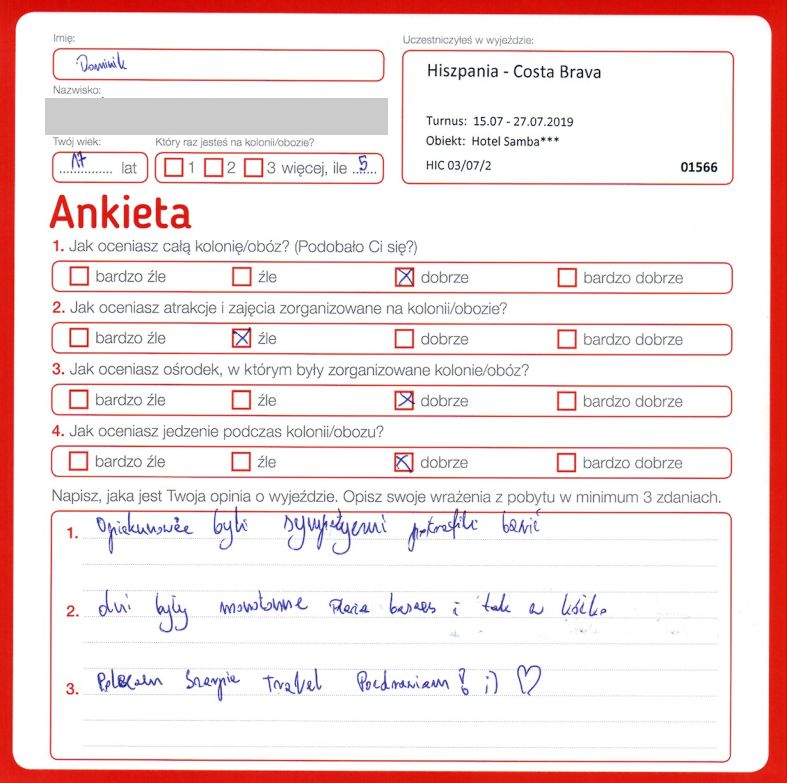 Imię:
Dominik
Nazwisko:
Twój wiek:
17 lat
Który raz jesteś na kolonii/obozie?
1 2 3 więcej, ile 5
Uczestniczyłeś w wyjeździe:
Hiszpania - Costa Brava
Turnus: 15.07 - 27.07.2019
Obiekt: Hotel Samba***
HIC 03/07/2 01566
Ankieta
1. Jak oceniasz całą kolonię/obóz? (Podobało Ci się?)
bardzo źle źle dobrze bardzo dobrze
2. Jak oceniasz atrakcje i zajęcia zorganizowane na kolonii/obozie?
bardzo źle źle dobrze bardzo dobrze
3. Jak oceniasz ośrodek, w którym były zorganizowane kolonie/obóz?
bardzo źle źle dobrze bardzo dobrze
4. Jak oceniasz jedzenie podczas kolonii/obozu?
bardzo źle źle dobrze bardzo dobrze
Napisz, jaka jest Twoja opinia o wyjeździe. Opisz swoje wrażenia z pobytu w minimum 3 zdaniach.
1. Opiekunowie byli
2. dni były monotonne Plaża basen i tak w kółko
3. Polecam Travel Pozdrawiam! ;) ♡